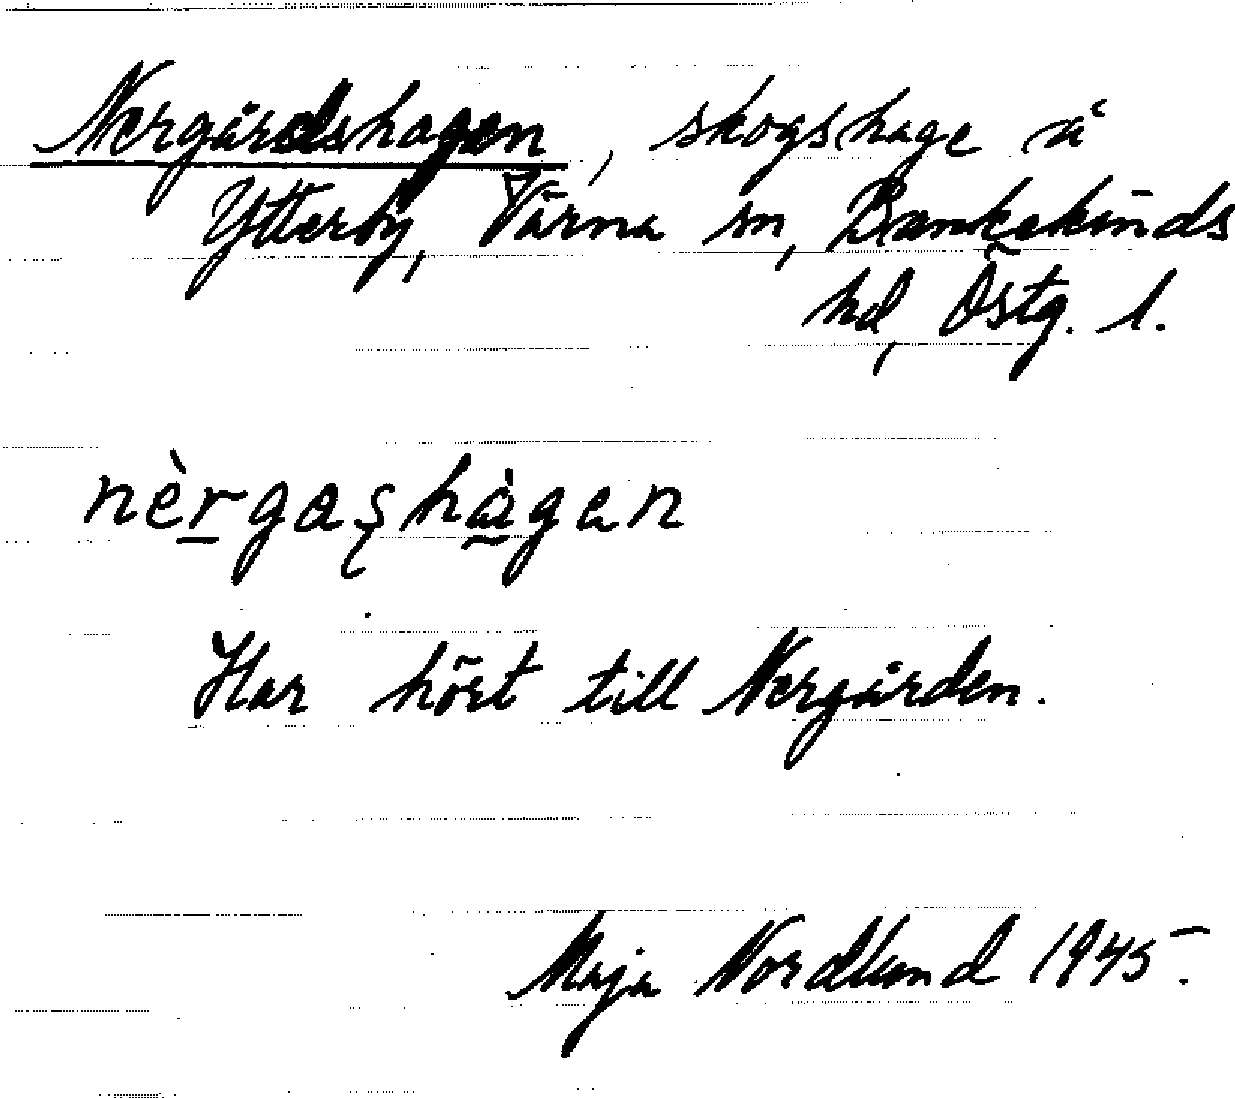 Nergårdshagen, skogshage å
Ytterby, Värna sn, Bankekinds
hd, Östg. l.
nèrgaʂhàgen
Har hört till Nergården.
Maja Nordlund 1945.